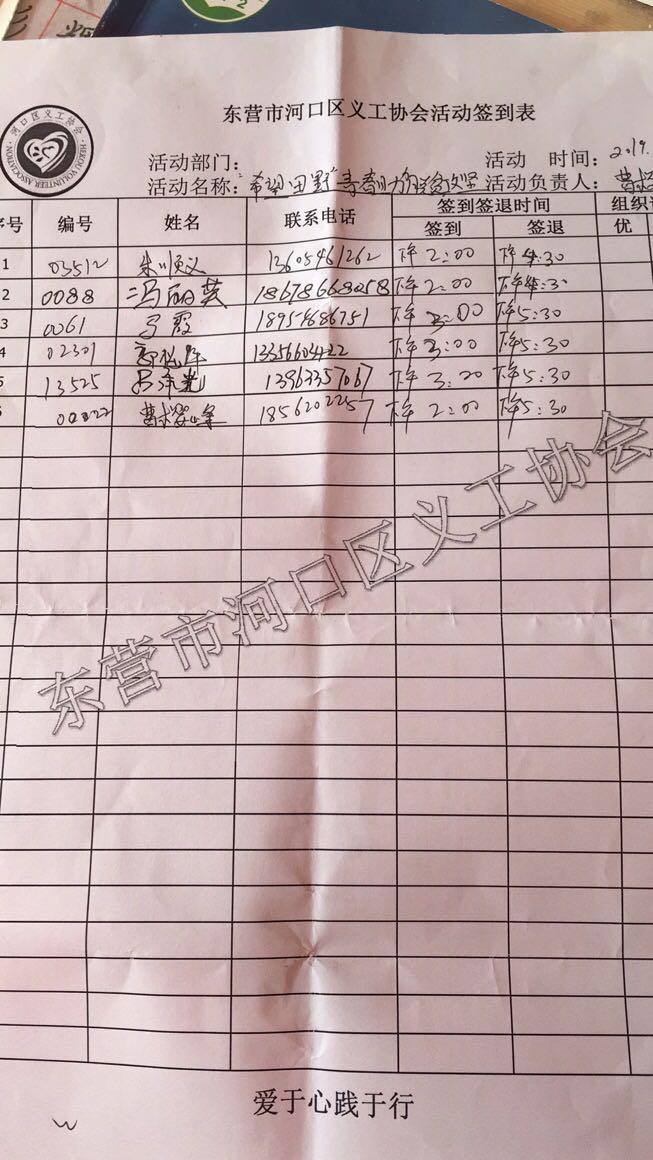 2
河口区义工协会
HEKOU VOLUNTEER ASSOCIATION
东营市河口区义工协会活动签到表
活动部门： 活动 时间：2019.
活动名称："希望田野"青春助力脱贫攻坚 活动负责人：曹
序号 编号 姓名 联系电话 签到签退时间 组织
签到 签退 优
1 03512 朱顺义 13605461262 下午2:00 下午4:30
2 0088 冯丽英 18678668058 下午2:00 下午4:30
3 0061 马霞 18954686751 下午3:00 下午5:30
4 02301 13356604222 下午3:00 下午5:30
5 13525 吕泽光 13963357067 下午3:00 下午5:30
6 曹 峰 18562022257 下午2:00 下午5:30
东营市河口区义工协会
爱于心践于行